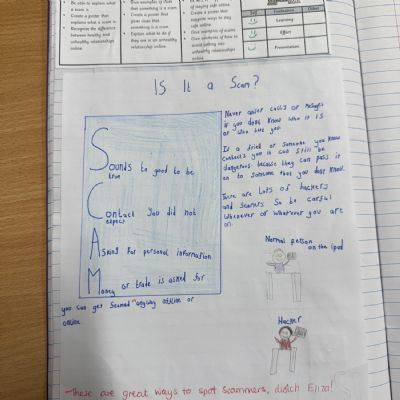 Be able to explain what a scam is
Create a poster that explains what a scam is
Recognise the difference between healthy and unhealthy relationships online
that something is a scam.
Create a poster that gives clues that something is a scam.
Explain what to do if they are in an unhealthy relationship online
of staying safe online
Create a poster that suggests ways to stay safe online
Give examples of scams
unhealthy relationships online
Self
Evaluation
Other
Learning
Effort
Presentation
Is It a Scam?
Sounds to good to be
true
Contact you did not
expect
Asking for personal information
Money or trade is asked for
you can get Scamed anyway offline or
online
Never anser calls or
if you dont know who it is
or who
Is a
contacts you it can still be
dangerous because they can pass it
on to someone that you dont know.
There are lots of hackers
and scamers so be carful
whenever or whatever you are
on.
Normal person
on the ipad
Hacker
-These are great ways to spot scammers,